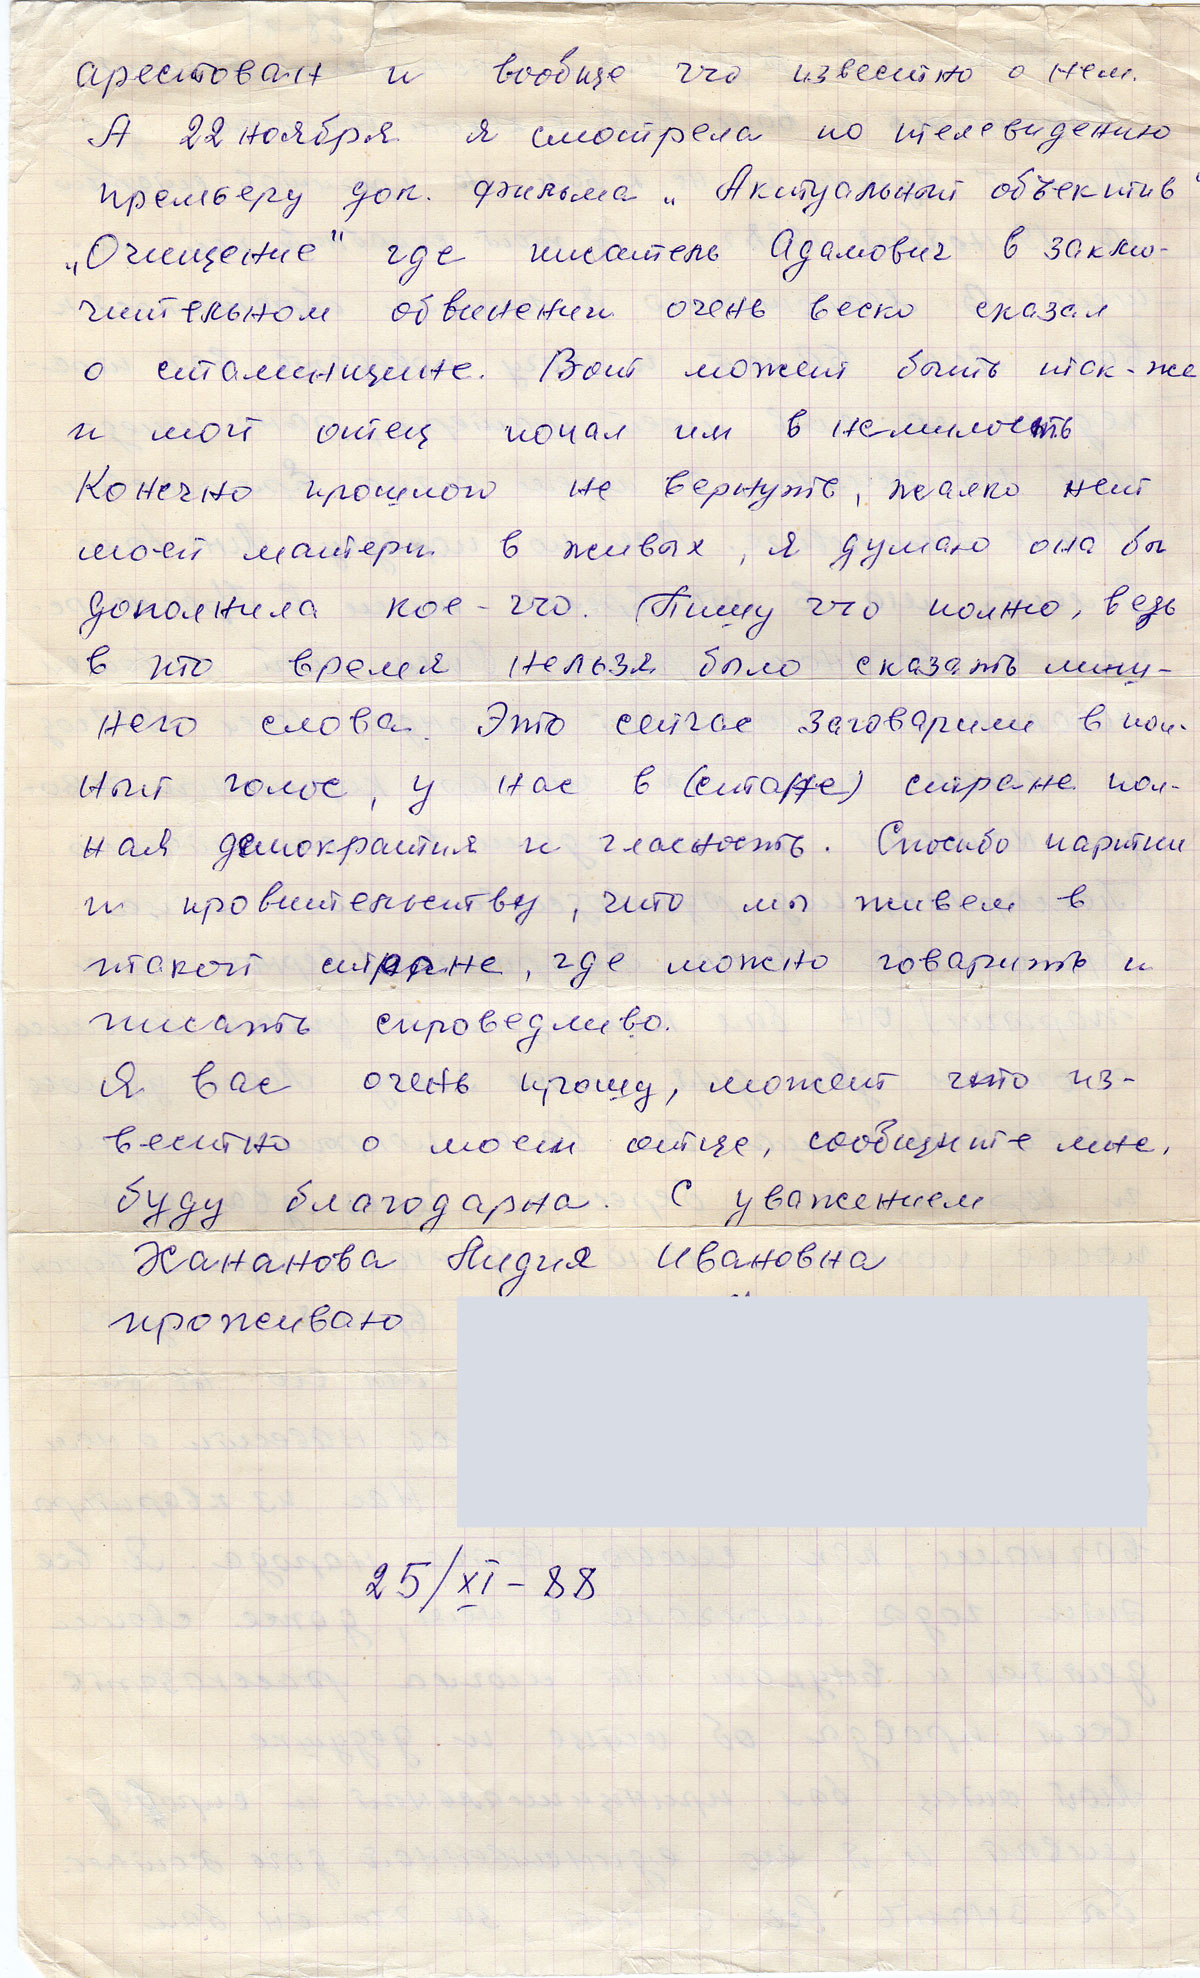 арестован и вообще что известно о нем.
А 22 ноября я смотрела по телевидению
премьеру док. фильма „Актуальный объектив"
„Очищение" где писатель Адамович в заклю-
чительном обвинении очень веско сказал
о сталинщине. Вот может быть так-же
и мой отец попал им в немилость
Конечно прошлого не вернуть, жалко нет
моей матери в живых, я думаю она бы
дополнила кое-что. Пишу что помню, ведь
в то время нельзя было сказать лиш-
него слова. Это сейчас заговорили в пол-
ный голос, у нас в (стане) стране пол-
ная демократия и гласность. Спасибо партии
и правительству, что мы живем в
такой стране, где можно говорить и
писать справедливо.
Я вас очень прошу, может что из-
вестно о моем отце, сообщите мне,
буду благодарна. С уважением
Хананова Лидия Ивановна
проживаю
25/XI-88